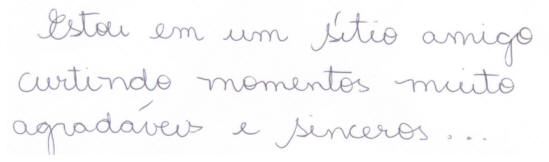 Estou em um sítio amigo
curtindo momentos muito
agradáveis e sinceros...